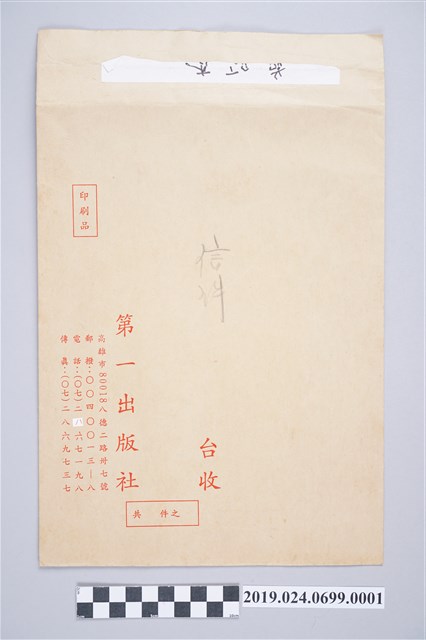 印刷品
信件
台收
第一出版社
高雄市80018八德二路卅七號
郵撥：〇〇四〇〇一三—八
電話：(〇七)二八六七一九八
傳真：(〇七)二八六九七三七
共 件之
2019.024.0699.0001